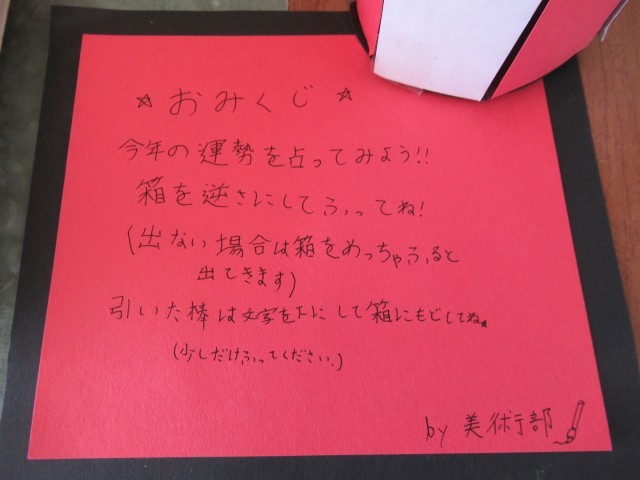 ☆おみくじ☆
今年の運勢を占ってみよう!!
箱を逆さにしてふってね!
(出ない場合は箱をめっちゃふると
出てきます)
引いた棒は文字を下にして箱にもどしてね。
(少しだけふってください。)
by 美術部